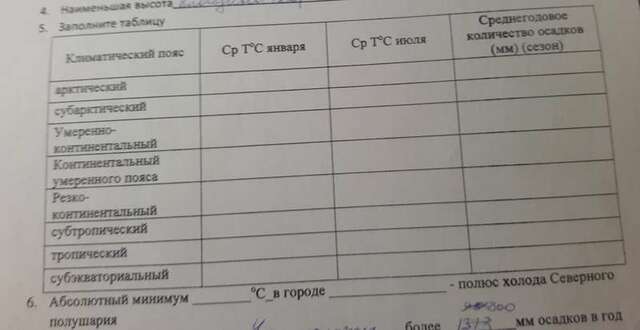 4. Наименьшая высота
5. Заполните таблицу
Климатический пояс
Ср Т°С января
Ср Т°С июля
Среднегодовое
количество осадков
(мм) (сезон)
арктический
субарктический
Умеренно-
континентальный
Континентальный
умеренного пояса
Резко-
континентальный
субтропический
тропический
субэкваториальный
6. Абсолютный минимум ________°С_в городе ________ - полюс холода Северного
полушария
более 1373 мм осадков в год